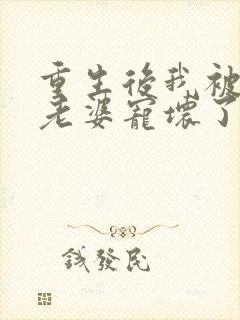 重生後我被
老婆寵壞了
錢發民